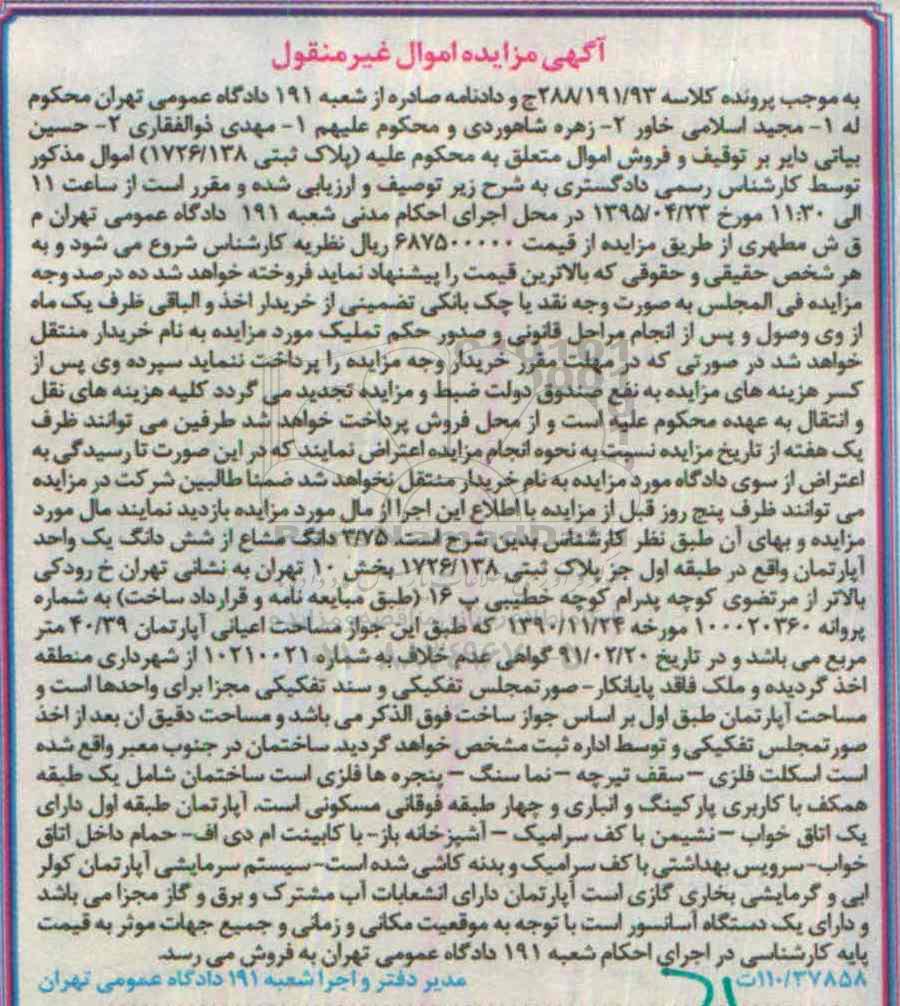 آگهی مزایده اموال غیر منقول
به موجب پرونده کلاسه ۲۸۸/۱۹۱/۹۳ج و دادنامه صادره از شعبه ۱۹۱ دادگاه عمومی تهران محکوم
له ۱- مجید اسلامی خاور ۲- زهره شاهوردی و محکوم علیهم ۱- مهدی ذوالفقاری ۲- حسین
بیاتی دایر بر توقیف و فروش اموال متعلق به محکوم علیه (پلاک ثبتی ۱۷۲۶/۱۳۸) اموال مذکور
توسط کارشناس رسمی دادگستری به شرح زیر توصیف و ارزیابی شده و مقرر است از ساعت ۱۱
الی ۱۱:۳۰ مورخ ۱۳۹۵/۰۴/۲۳ در محل اجرای احکام مدنی شعبه ۱۹۱ دادگاه عمومی تهران م
ق ش مطهری از طریق مزایده از قیمت ۶۸۷۵۰۰۰۰۰ ریال نظریه کارشناس شروع می شود و به
هر شخص حقیقی و حقوقی که بالاترین قیمت را پیشنهاد نماید فروخته خواهد شد ده درصد وجه
مزایده فی المجلس به صورت وجه نقد یا چک بانکی تضمینی از خریدار اخذ و الباقی ظرف یک ماه
از وی وصول و پس از انجام مراحل قانونی و صدور حکم تملیک مورد مزایده به نام خریدار منتقل
خواهد شد در صورتی که در مهلت مقرر خریدار وجه مزایده را پرداخت ننماید سپرده وی پس از
کسر هزینه های مزایده به نفع صندوق دولت ضبط و مزایده تجدید می گردد کلیه هزینه های نقل
و انتقال به عهده محکوم علیه است و از محل فروش پرداخت خواهد شد طرفین می توانند ظرف
یک هفته از تاریخ مزایده نسبت به نحوه انجام مزایده اعتراض نمایند که در این صورت تا رسیدگی به
اعتراض از سوی دادگاه مورد مزایده به نام خریدار منتقل نخواهد شد ضمنا طالبین شرکت در مزایده
می توانند ظرف پنج روز قبل از مزایده با اطلاع این اجرا از مال مورد مزایده بازدید نمایند مال مورد
مزایده و بهای آن طبق نظر کارشناس بدین شرح است. ۳/۷۵ دانگ مشاع از شش دانگ یک واحد
آپارتمان واقع در طبقه اول جز پلاک ثبتی ۱۷۲۶/۱۳۸ بخش ۱۰ تهران به نشانی تهران خ رودکی
بالاتر از مرتضوی کوچه پدرام کوچه خطیبی پ ۱۶ (طبق مبایعه نامه و قرارداد ساخت) به شماره
پروانه ۱۰۰۰۲۰۳۶۰ مورخه ۱۳۹۰/۱۱/۲۴ که طبق این جواز مساحت اعیانی آپارتمان ۴۰/۳۹ متر
مربع می باشد و در تاریخ ۹۱/۰۲/۲۰ گواهی عدم خلاف به شماره ۱۰۲۱۰۰۲۱ از شهرداری منطقه
اخذ گردیده و ملک فاقد پایانکار- صورتمجلس تفکیکی و سند تفکیکی مجزا برای واحدها است و
مساحت آپارتمان طبق اول بر اساس جواز ساخت فوق الذکر می باشد و مساحت دقیق ان بعد از اخذ
صورتمجلس تفکیکی و توسط اداره ثبت مشخص خواهد گردید. ساختمان در جنوب معبر واقع شده
است اسکلت فلزی – سقف تیرچه – نما سنگ – پنجره ها فلزی است ساختمان شامل یک طبقه
همکف با کاربری پارکینگ و انباری و چهار طبقه فوقانی مسکونی است. آپارتمان طبقه اول دارای
یک اتاق خواب – نشیمن با کف سرامیک – آشپزخانه باز- با کابینت ام دی اف- حمام داخل اتاق
خواب- سرویس بهداشتی با کف سرامیک و بدنه کاشی شده است- سیستم سرمایشی آپارتمان کولر
ابی و گرمایشی بخاری گازی است آپارتمان دارای انشعابات آب مشترک و برق و گاز مجزا می باشد
و دارای یک دستگاه آسانسور است با توجه به موقعیت مکانی و زمانی و جمیع جهات موثر به قیمت
پایه کارشناسی در اجرای احکام شعبه ۱۹۱ دادگاه عمومی تهران به فروش می رسد.
۱۱۰/۳۷۸۵۸ت مدیر دفتر و اجرا شعبه ۱۹۱ دادگاه عمومی تهران